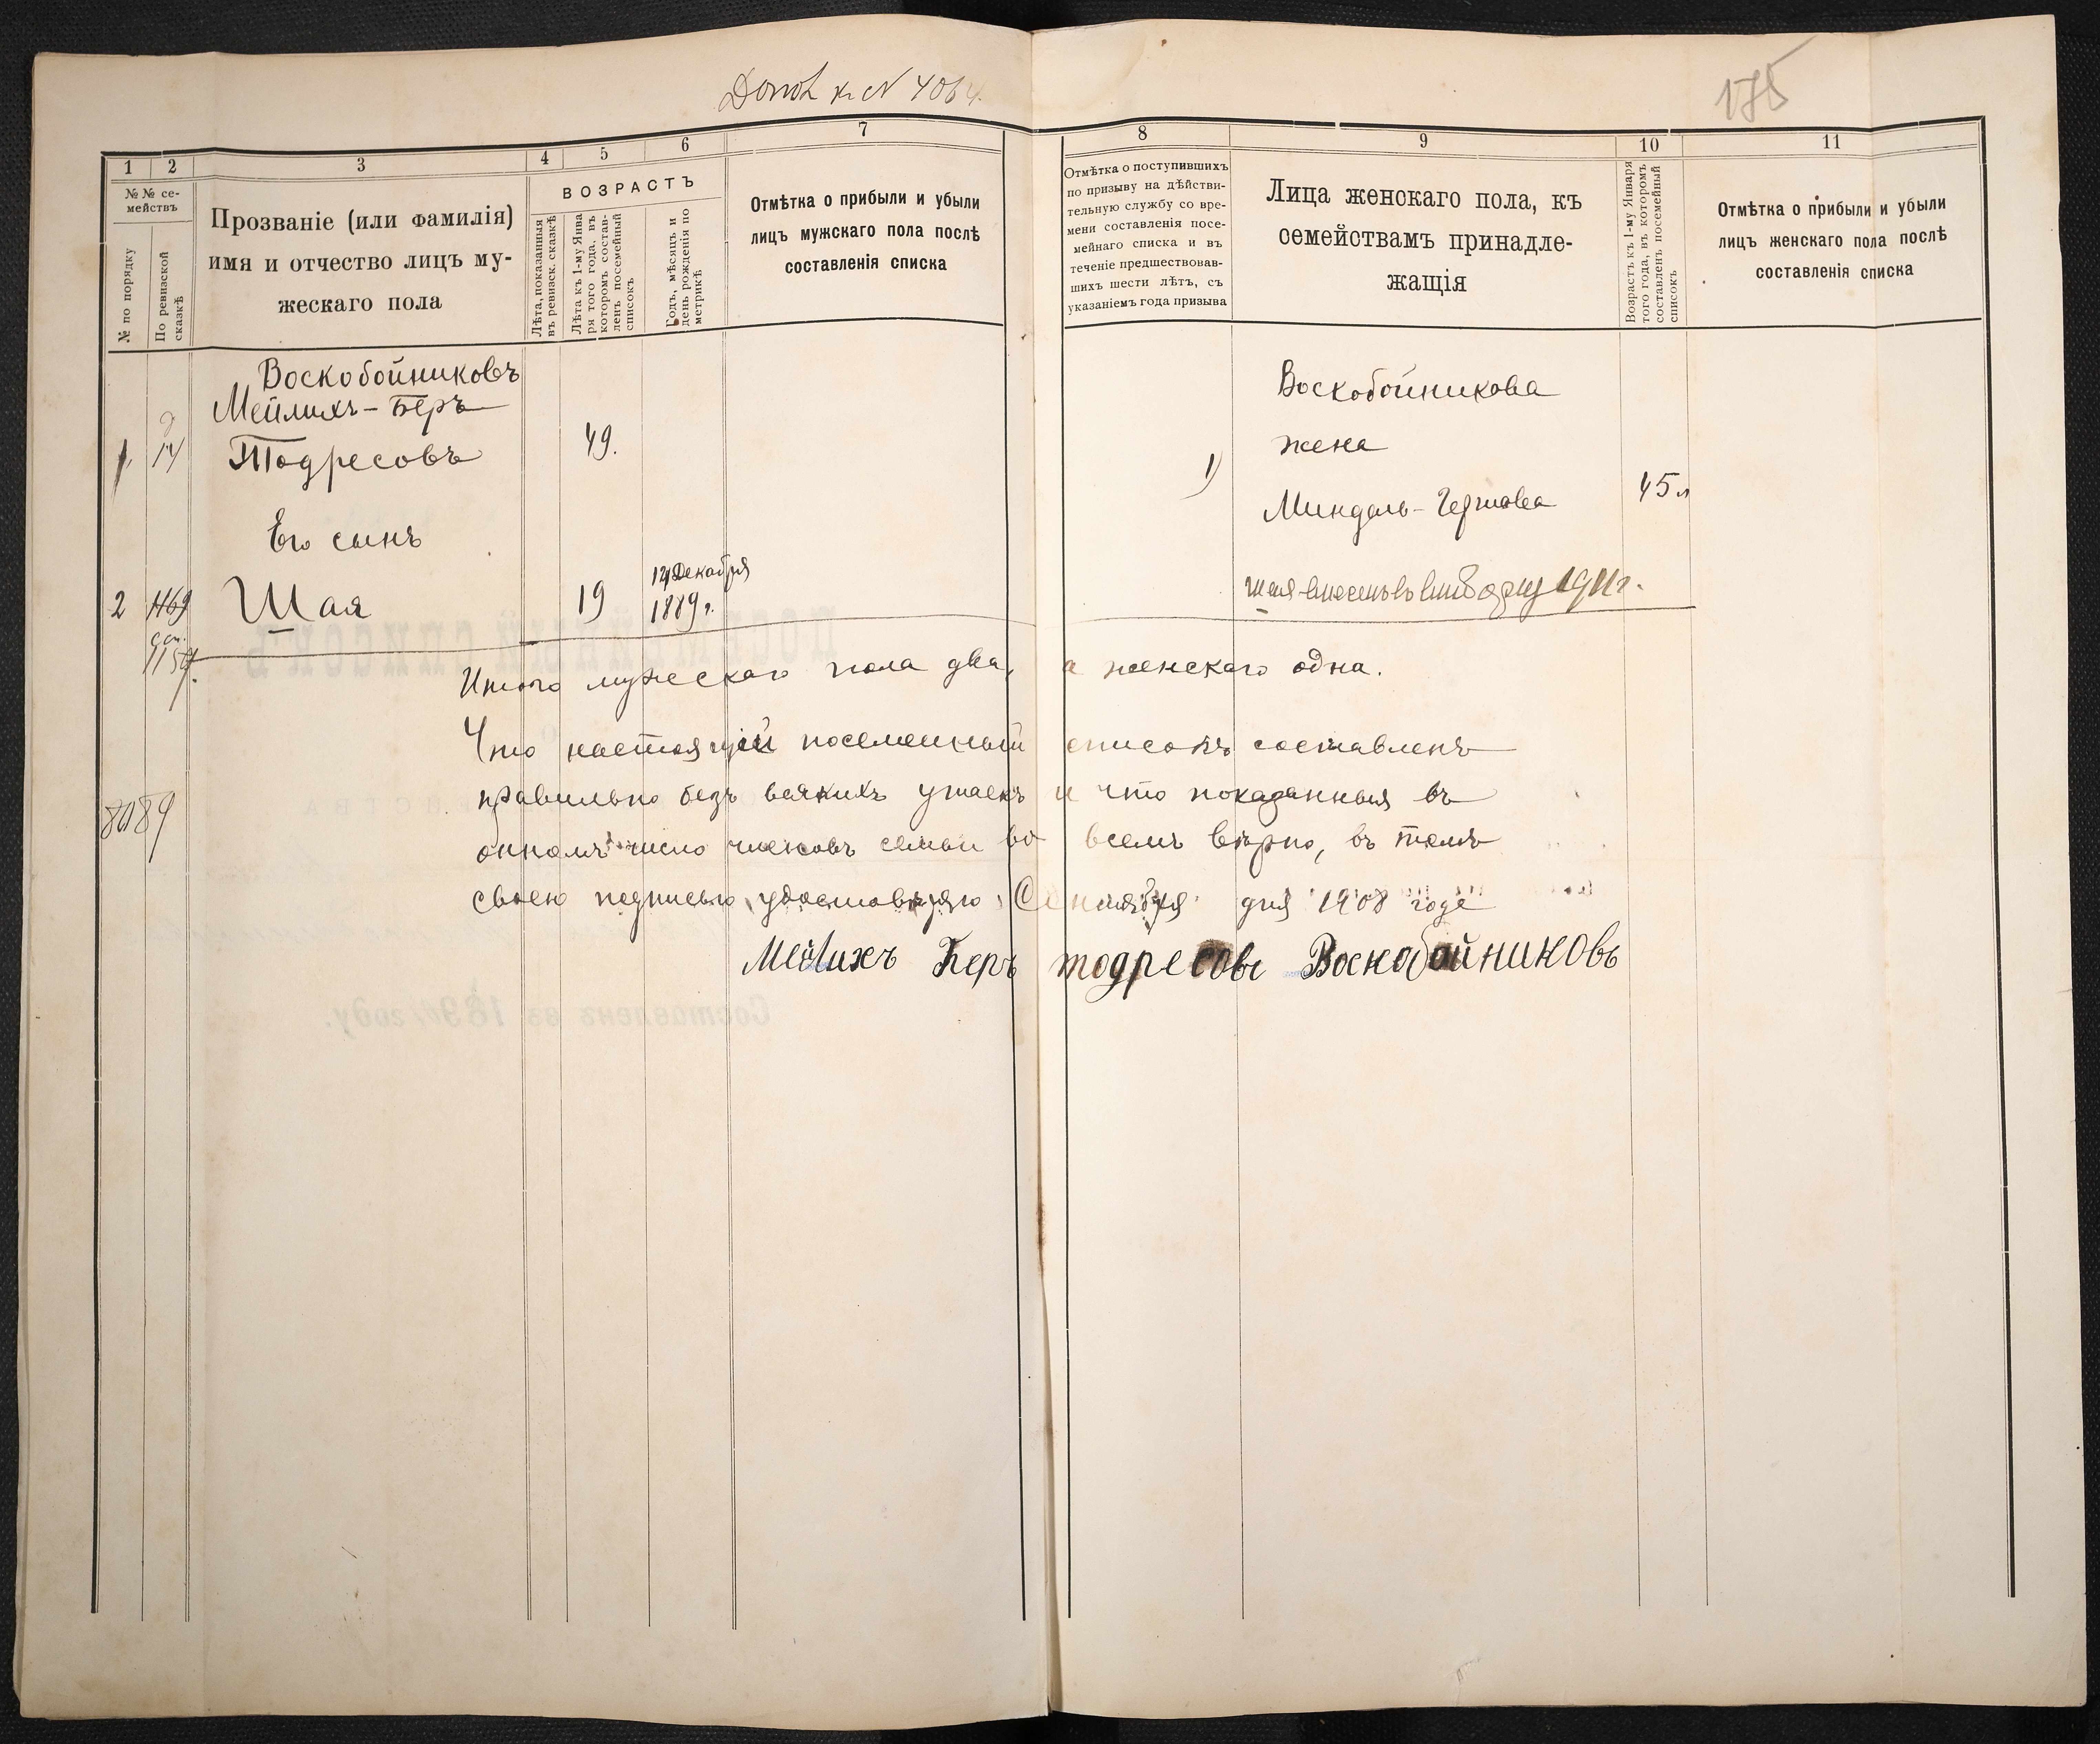 Допол к N 4064.
175
1 2 3 4 5 6 7 8 9 10 11
№№ се-
мействъ
№ по порядку
По ревизской
сказкѣ
Прозваніе (или фамилія)
имя и отчество лицъ му-
жескаго пола
ВОЗРАСТЪ
Лѣта, показанныя
въ ревизск. сказкѣ
Лѣта къ 1-му Янва
ря того года, въ
которомъ состав-
ленъ посемейный
списокъ
Годъ, мѣсяцъ и
день рожденія по
метрикѣ
Отмѣтка о прибыли и убыли
лицъ мужскаго пола послѣ
составленія списка
Отмѣтка о поступившихъ
по призыву на дѣйстви-
тельную службу со вре-
мени составленія посе-
мейнаго списка и въ
теченіе предшествовав-
шихъ шести лѣтъ, съ
указаніемъ года призыва
Лица женскаго пола, къ
семействамъ принадле-
жащія
Возрастъ къ 1-му Января
того года, въ которомъ
составленъ посемейный
списокъ
Отмѣтка о прибыли и убыли
лицъ женскаго пола послѣ
составленія списка
Воскобойниковъ
Мейлихъ-Беръ
1 14 Тодресовъ 49.
Его сынъ
2 1169 Шая 19 14 Декабря
1889 г.
8089
Воскобойникова
жена
1) Миндель-Гершова 45 л
Шая внесенъ въ 1911 г.
Итого мужескаго пола два, а женскаго одна.
Что настоящій посемейный списокъ составленъ
правильно безъ всякихъ утаекъ и что показанныя въ
ономъ число членовъ семьи во всемъ вѣрно, въ томъ
своею подписью удостовѣряю. Сентября дня 1908 года
Мейлихъ Беръ тодресовъ Воскобойниковъ
ПОСЕМЕЙНЫЙ СПИСОКЪ
Составленъ въ 189 году.